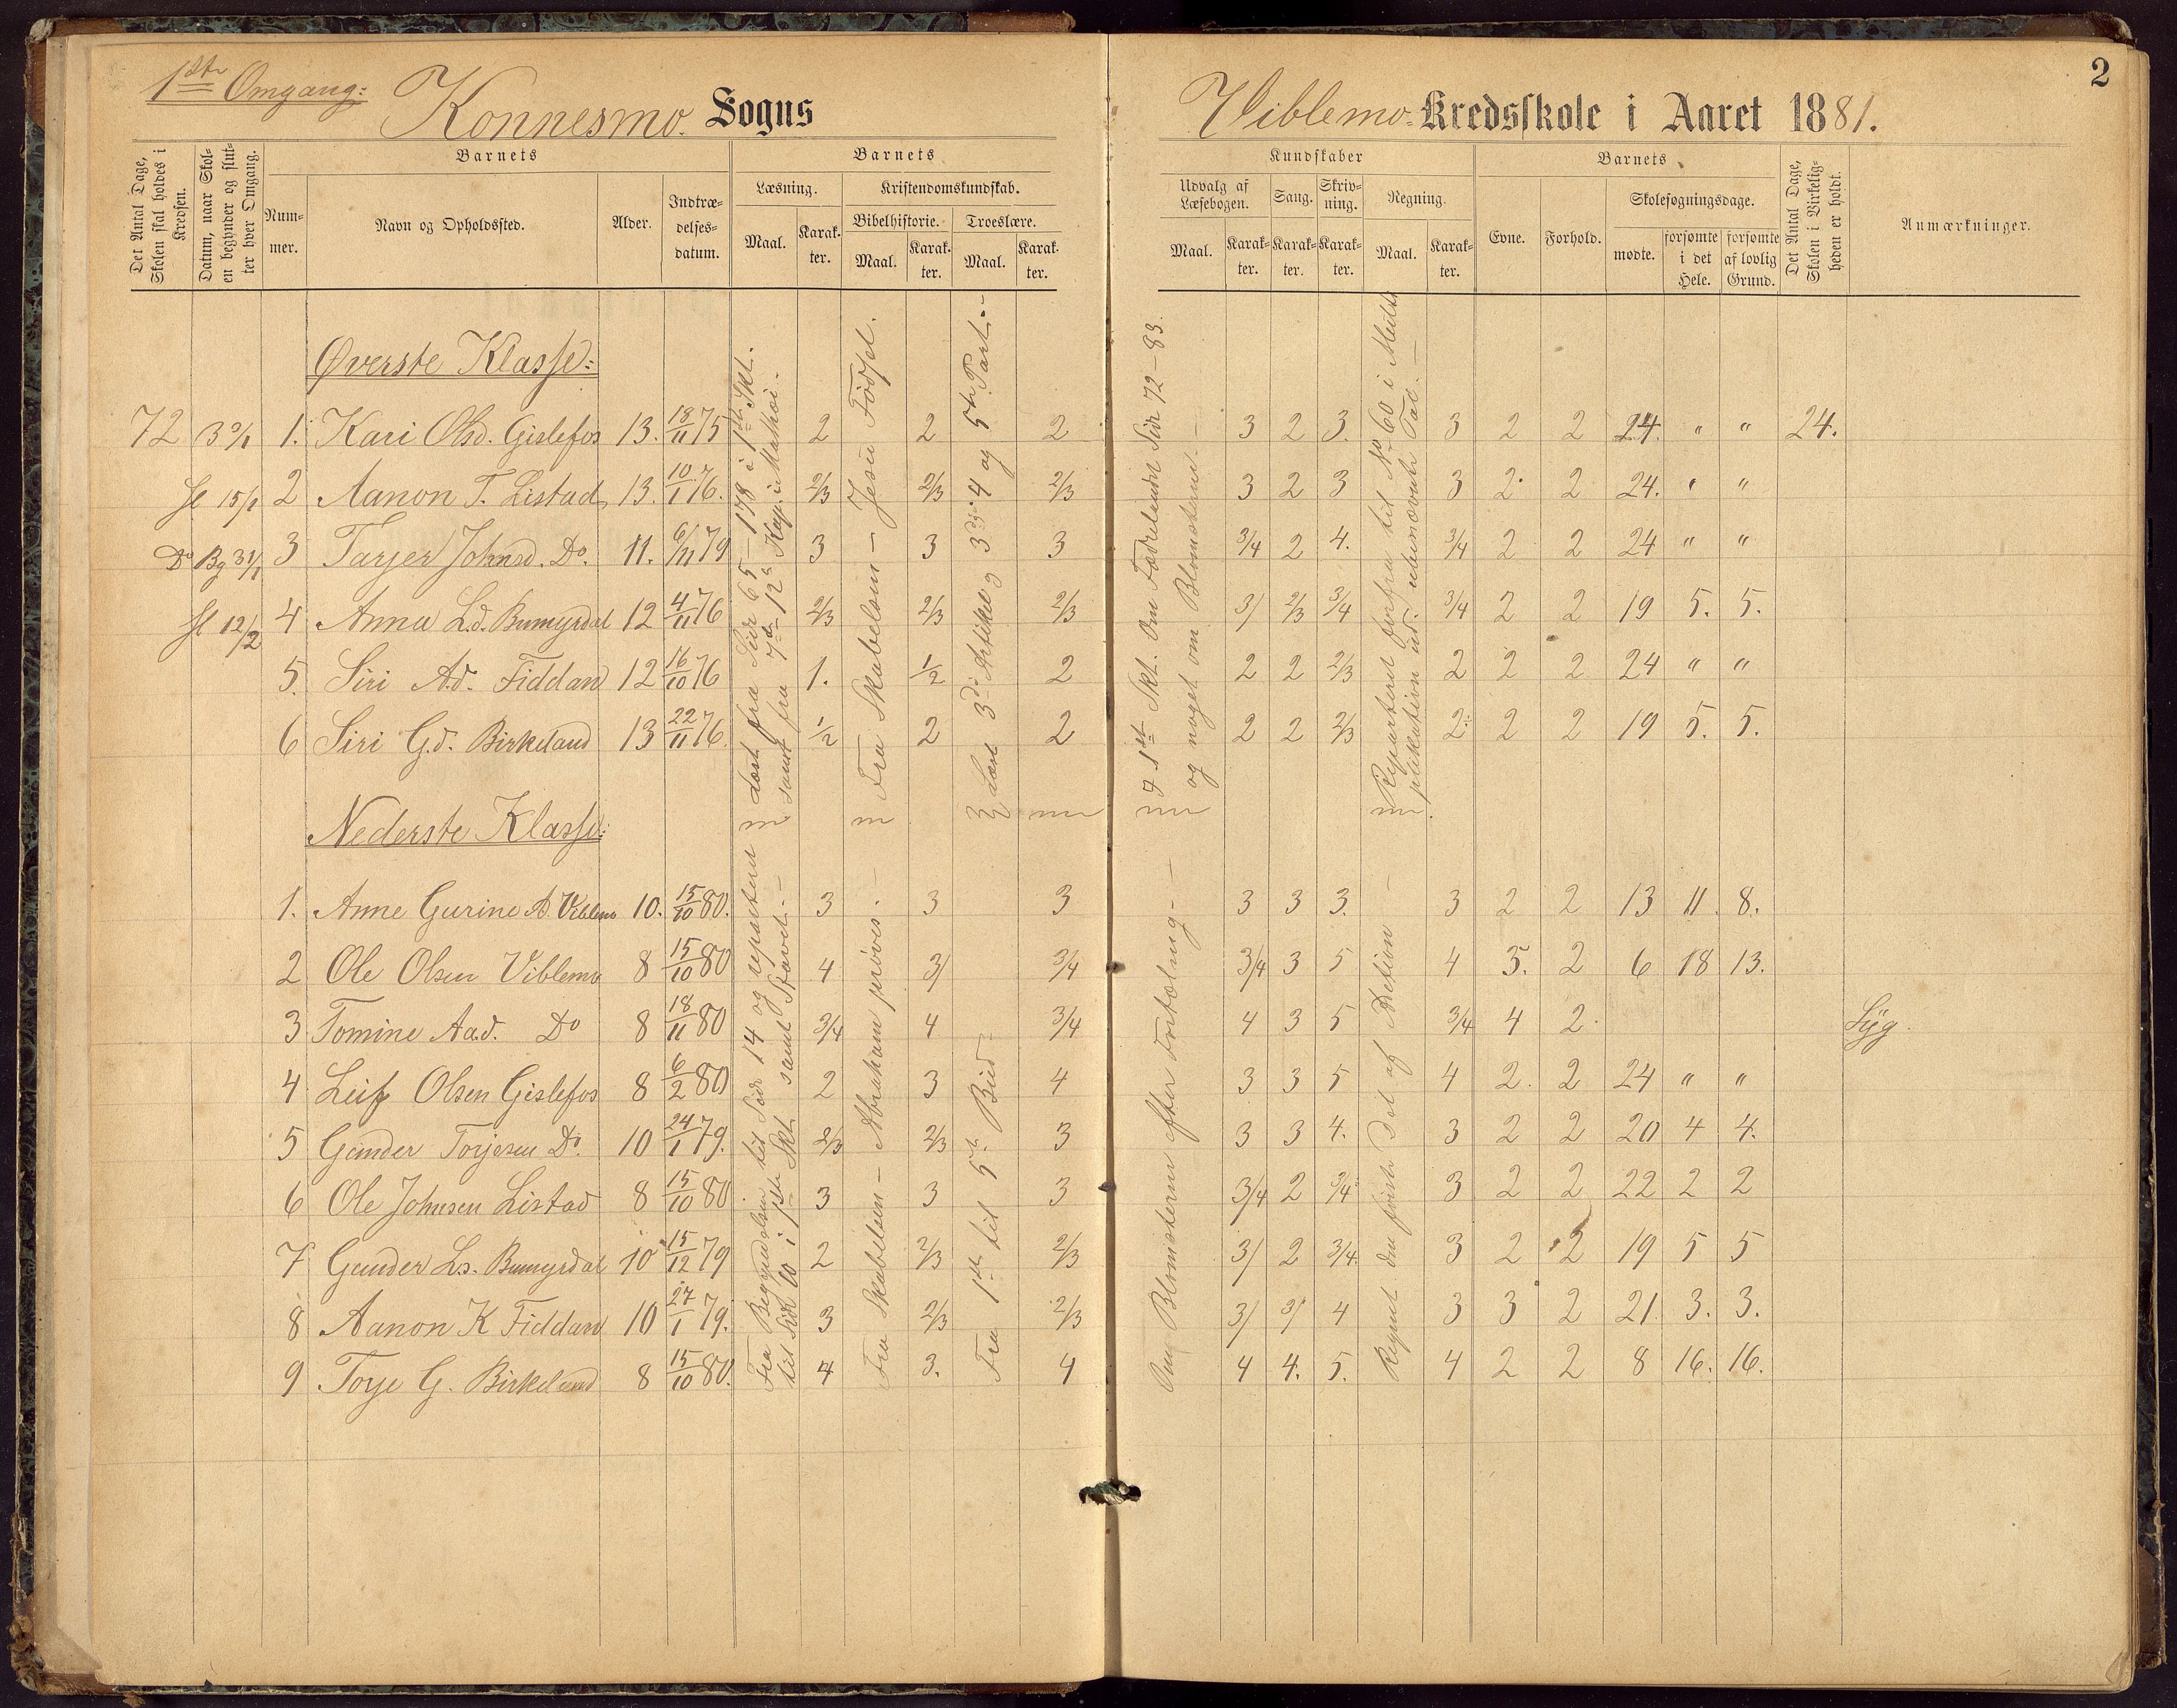 2
1ste Omgang:
Konnesmo Sogns
Viblemo Kredsskole i Aaret 1881.
Det Antal Dage, Skolen skal holdes i Kredsen.
Datum, naar Skolen begynder og slutter hver Omgang.
Barnets
Nummer.
Navn og Opholdssted.
Alder.
Indtrædelsesdatum.
Barnets
Læsning.
Maal.
Karakter.
Kristendomskundskab.
Bibelhistorie.
Maal.
Karakter.
Troeslære.
Maal.
Karakter.
Kundskaber
Udvalg af Læsebogen.
Maal.
Karakter.
Sang.
Karakter.
Skrivning.
Karakter.
Regning.
Maal.
Karakter.
Barnets
Evne.
Forhold.
Skolesøgningsdage.
mødte.
forsømte i det Hele.
forsømte af lovlig Grund.
Det Antal Dage, Skolen i Virkeligheden er holdt.
Anmærkninger.
Øverste Klasse:
72 3 % 1. Kari Olsd. Gislefos 13. 18/11 75 2 2 2 3 2 3. 3 2 2 24. " " 24.
Sl 15/1 2 Aanon T. Listad 13. 10/1 76. 2/3 2/3 2/3 3 2 3 3 2 2 24. " "
Do Bg 31/1 3 Tarjer Johnsd. Do. 11. 6/11 79 3 3 3 3/4 2 4. 3/4 2 2 24 " "
Sl 12/2 4 Anna L.d. Bumyrdal 12 4/11 76 2/3 2/3 2/3 3/ 2/3 3/4 3/4 2 2 19 5. 5.
5. Siri A.d. Fiddan 12 16/10 76 1. 1/2 2 2 2 2/3 2 2 2 24 " "
6 Siri G.d. Birkeland 13 22/11 76. 1/2 2 2 2 2 2/3 2 2 2 19 5. 5.
Læst fra Side 65 - 178 i 1ste Skl.
samt fra 7de - 12te Kap. i Mathæi -
Fra Skabelsen - Jesu Fødsel.
Læst 3die Artikel og 3die 4 og 5te Part. -
I 1ste Skl. Om Fædrelandet Side 72 - 83.
og noget om Blomsterne. -
Repeteret forfra til No 60 i Multiplikation
Nederste Klasse:
1. Anne Gurine A. Viblemo 10. 15/10 80. 3 3 3 3 3 3. 3 2 2 13 11. 8.
2 Ole Olsen Viblemo 8 15/10 80 4 3/ 3/4 3/4 3 5 4 3. 2 6 18 13.
3 Tomine Aa.d. Do 8 18/11 80 3/4 4 3/4 4 3 5 3/4 4 2. Syg.
4 Leif Olsen Gislefos 8 6/2 80 2 3 4 3 3 5 4 2. 2 24 " "
5 Gunder Torjesen Do. 10 24/1 79. 2/3 2/3 3 3 3 4. 3 2 2 20 4 4.
6 Ole Johnsen Listad 8 15/10 80 3 3 3 3/4 2 3/4 3 2 2 22 2 2
7 Gunder Ls. Bumyrdal 10 15/12 79 2 2/3 2/3 3/ 2 3/4. 3 2 2 19 5 5
8 Aanon K Fiddan 10 27/1 79. 3 2/3 2/3 3/ 3/ 4 3 3 2 21 3. 3.
9 Torje G. Birkeland 8 15/10 80. 4 3. 4 4 4. 5. 4 2 2 8 16. 16.
Fra Begyndelsen til Side 14 og repeteret
til Side 60 i 1ste Skl. samt Stavet. -
Fra Skabelsen - Abraham prøves. -
Fra 1ste til 5te Bud -
Om Blomsterne efter Fortælning -
Regnet den første Del af